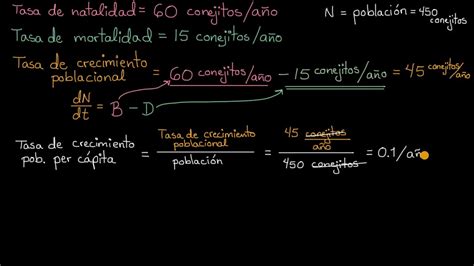 Tasa de natalidad = 60 conejitos/año
N = población = 450 conejitos
Tasa de mortalidad = 15 conejitos/año
Tasa de crecimiento poblacional = 60 conejitos/año - 15 conejitos/año = 45 conejitos/año
dN/dt = B - D
Tasa de crecimiento pob. per cápita = Tasa de crecimiento poblacional / población = 45 conejitos/año / 450 conejitos = 0.1/año